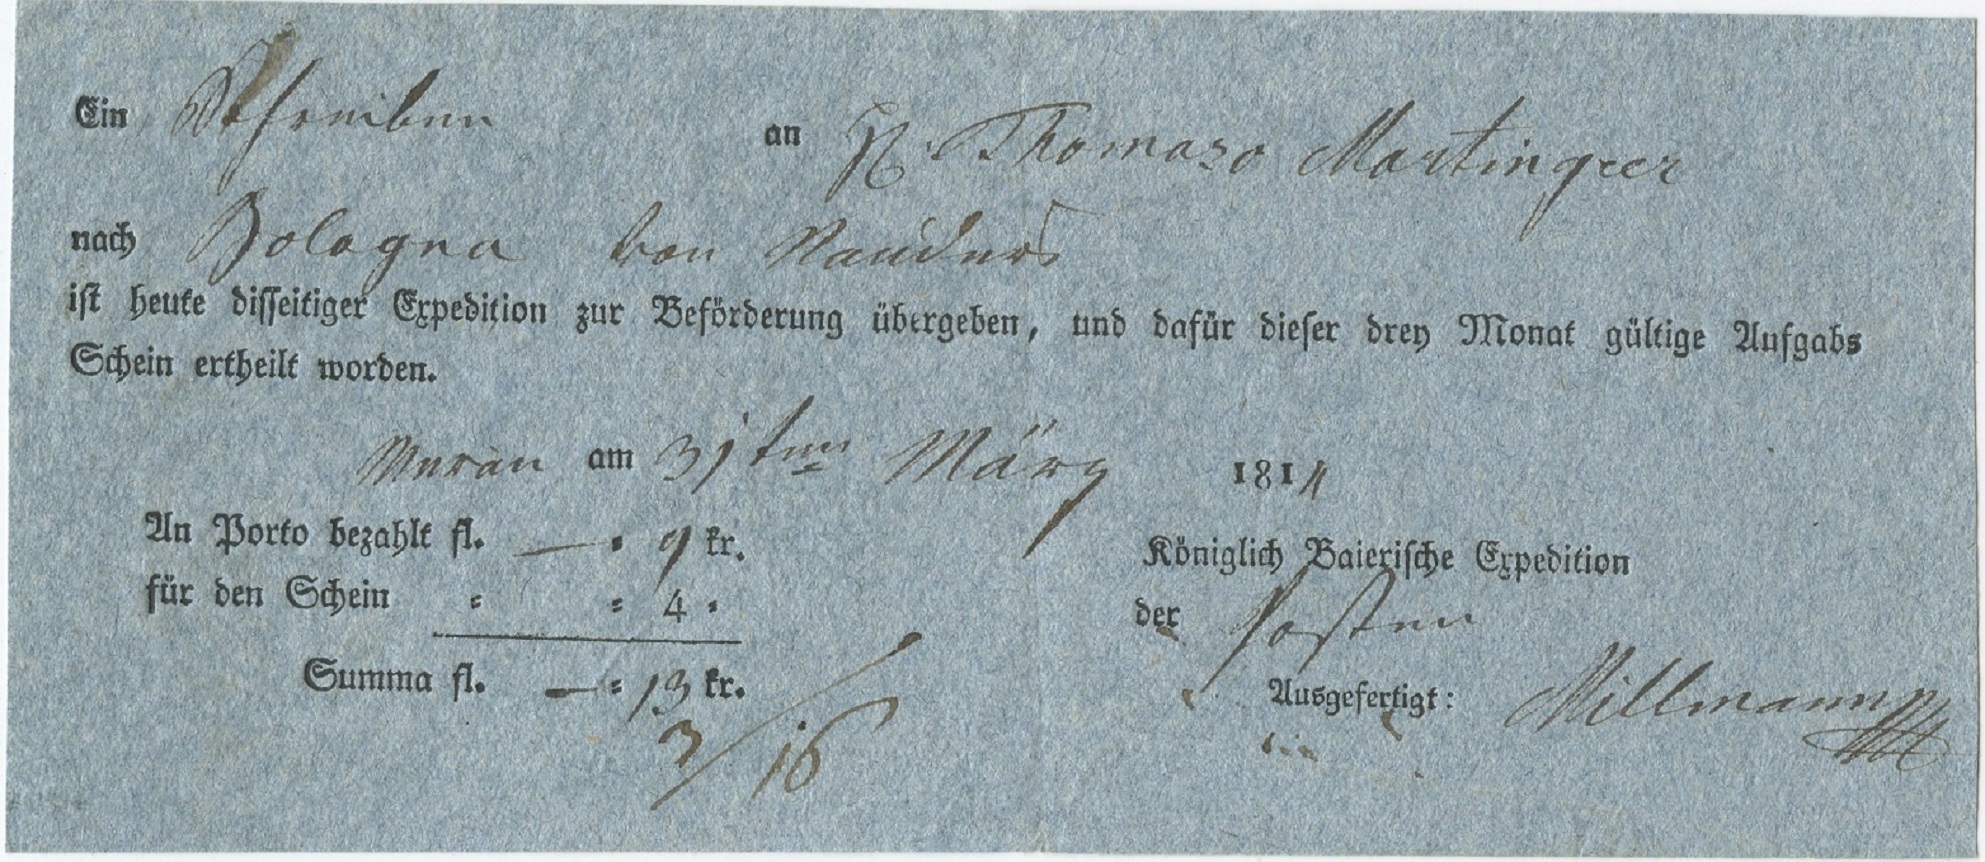 Ein Schreiben an H. Thomaso Martingeer
nach Bologna von Nauders
ist heute disseitiger Expedition zur Beförderung übergeben, und dafür dieser drey Monat gültige Aufgabs
Schein ertheilt worden.
Meran am 31ten März 1814
An Porto bezahlt fl. — " 9 kr.
für den Schein " " 4 "
Summa fl. — " 13 kr.
Königlich Baierische Expedition
der Posten
Ausgefertigt: Millmann